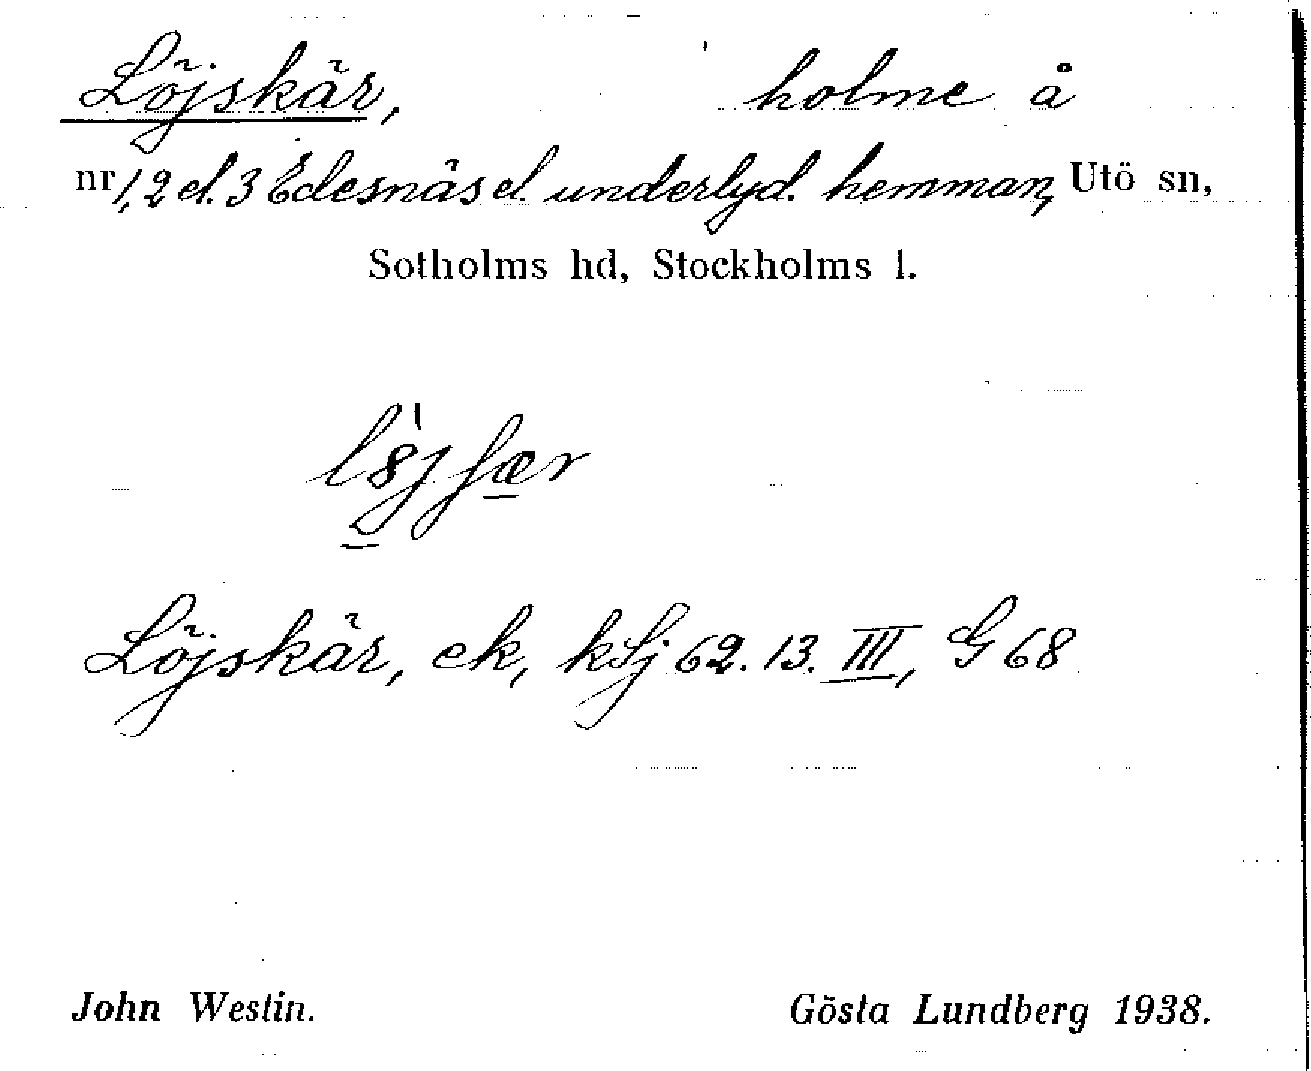 Löjskär, holme å
nr 1, 2 el. 3 Edesnäs el. underlyd. hemman, Utö sn,
Sotholms hd, Stockholms l.
Löjskär, ek, kSj 62. 13. III, G 68
John Westin. Gösta Lundberg 1938.